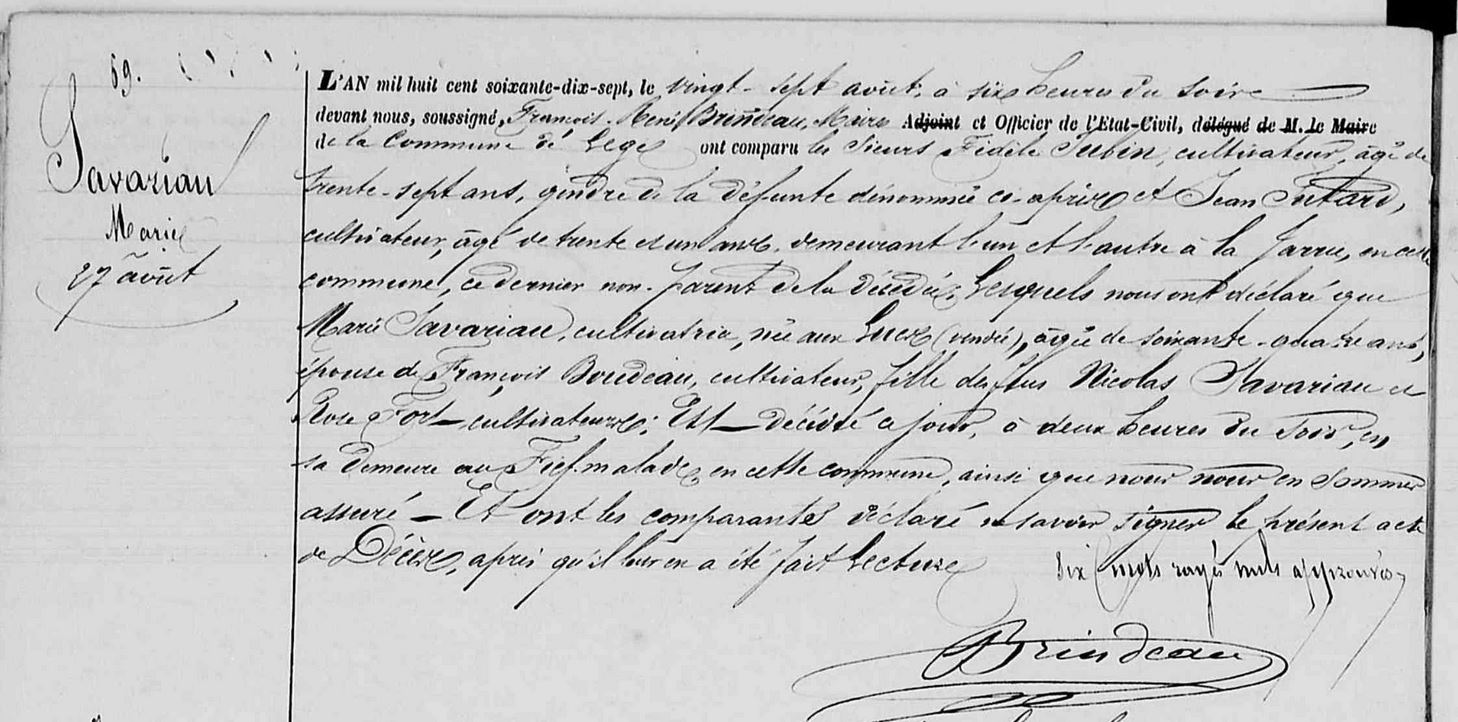 59.
Savariau
Marie
27 août
L'AN mil huit cent soixante-dix-sept, le vingt-sept août, à six heures du soir
devant nous, soussigné, François-René Brindeau, Maire Adjoint et Officier de l'Etat-Civil, délégué de M. le Maire
de la Commune de Legé ont comparu les Sieurs Fidèle Jubin, cultivateur, âgé de
trente-sept ans, gendre de la défunte dénommée ci-après et Jean
cultivateur, âgé de trente et un ans, demeurant l'un et l'autre à la Jarrie, en cette
commune, ce dernier non-parent de la décédée; Lesquels nous ont déclaré que
Marie Savariau, cultivatrice, née aux Lucs (vendée), âgée de soixante-quatre ans,
épouse de François Boudeau, cultivateur, fille des feus Nicolas Savariau et
Rose Fort cultivateurs; Est décédée ce jour, à deux heures du soir, en
sa demeure au Fief-malade, en cette commune, ainsi que nous nous en sommes
assuré — Et ont les comparants déclaré ne savoir signer le présent acte
de Décès, après qu'il leur en a été fait lecture
Six mots rayés nuls approuvés
Brindeau